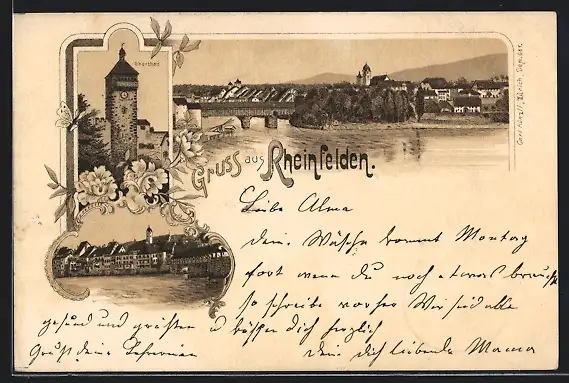 Oberthor
Gruss aus Rheinfelden.
Carl Künzli, Zürich, Dep. 666.
Liebe Alma
dein Wäsche kommt Montag
fort wenn du noch etwas brauchst
so schreibe vorher Wir sind alle
gesund und grüssen u küssen dich herzlich
Grüss deine Lehrerin dein dich liebende Mama